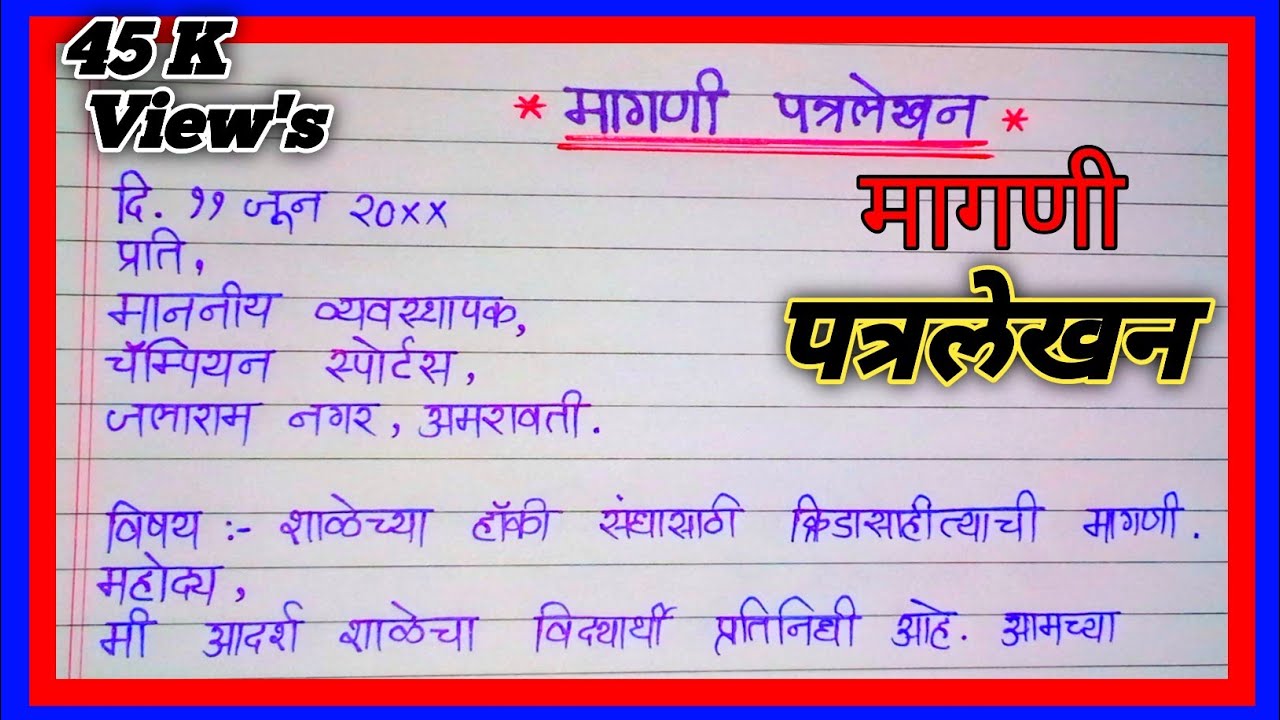 45 K
View's
* मागणी पत्रलेखन *
मागणी
पत्रलेखन
दि. ११ जून २०××
प्रति,
माननीय व्यवस्थापक,
चॅम्पियन स्पोर्टस,
जलाराम नगर, अमरावती.
विषय :- शाळेच्या हॉकी संघासाठी क्रिडासाहीत्याची मागणी.
महोदय,
मी आदर्श शाळेचा विद्यार्थी प्रतिनिधी आहे. आमच्या